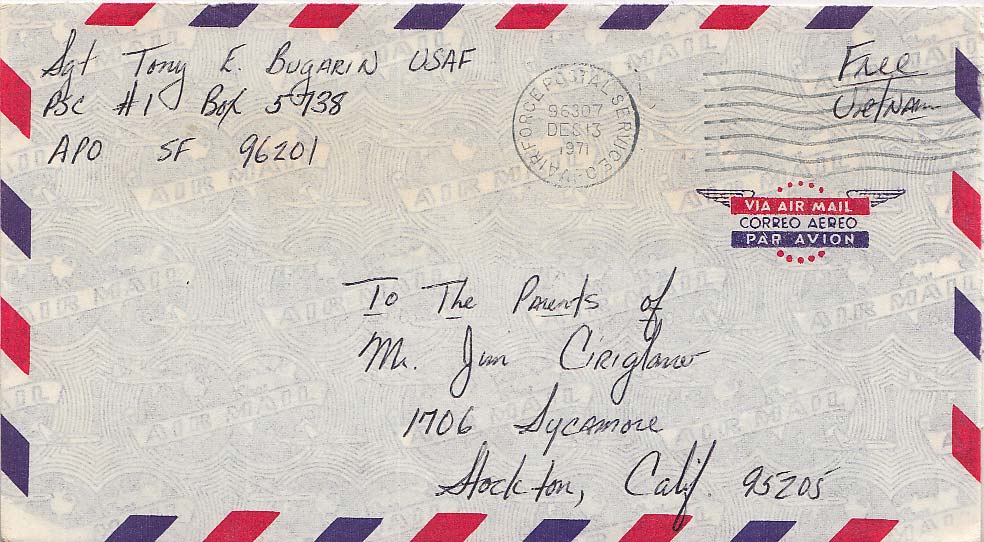 Sgt Tony E. Bugarin USAF
PSC #1 Box 5738
APO SF 96201
AIR FORCE POSTAL SERVICE
96307
DE 13
1971
Free
Vietnam
VIA AIR MAIL
CORREO AEREO
PAR AVION
To The Parents of
Mr. Jim Ciriglano
1706 Sycamore
Stockton, Calif. 95205
AIR MAIL
AIR MAIL
AIR MAIL
AIR MAIL
AIR MAIL